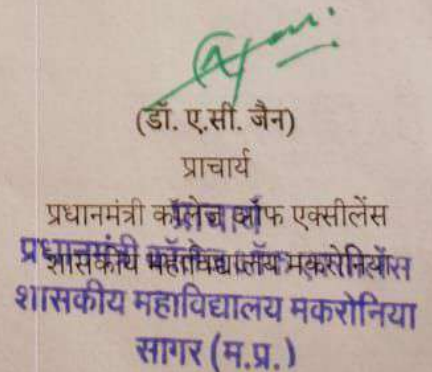 (डॉ. ए.सी. जैन)
प्राचार्य
प्रधानमंत्री कॉलेज ऑफ एक्सीलेंस
प्राचार्य
शासकीय महाविद्यालय मकरोनिया
प्रधानमंत्री कॉलेज ऑफ एक्सीलेंस
शासकीय महाविद्यालय मकरोनिया
सागर (म.प्र.)